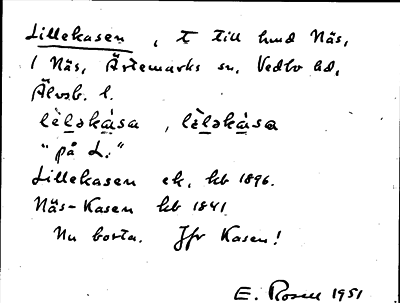 Lillekasen, t till hmd Näs,
1 Näs, Ärtemarks sn, Vedbo hd,
Älvsb. l.
lèləkàsa, lèləkàsa
"på L."
Lillekasen ek, kb 1896.
Näs-Kasen kb 1841.
Nu borta. Jfr Kasen!
E. Rosell 1951